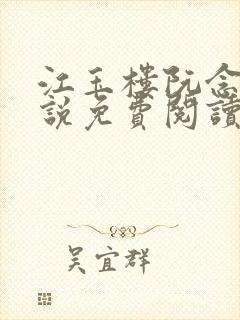 江玉樓阮念
說免費閱讀
吴宜群